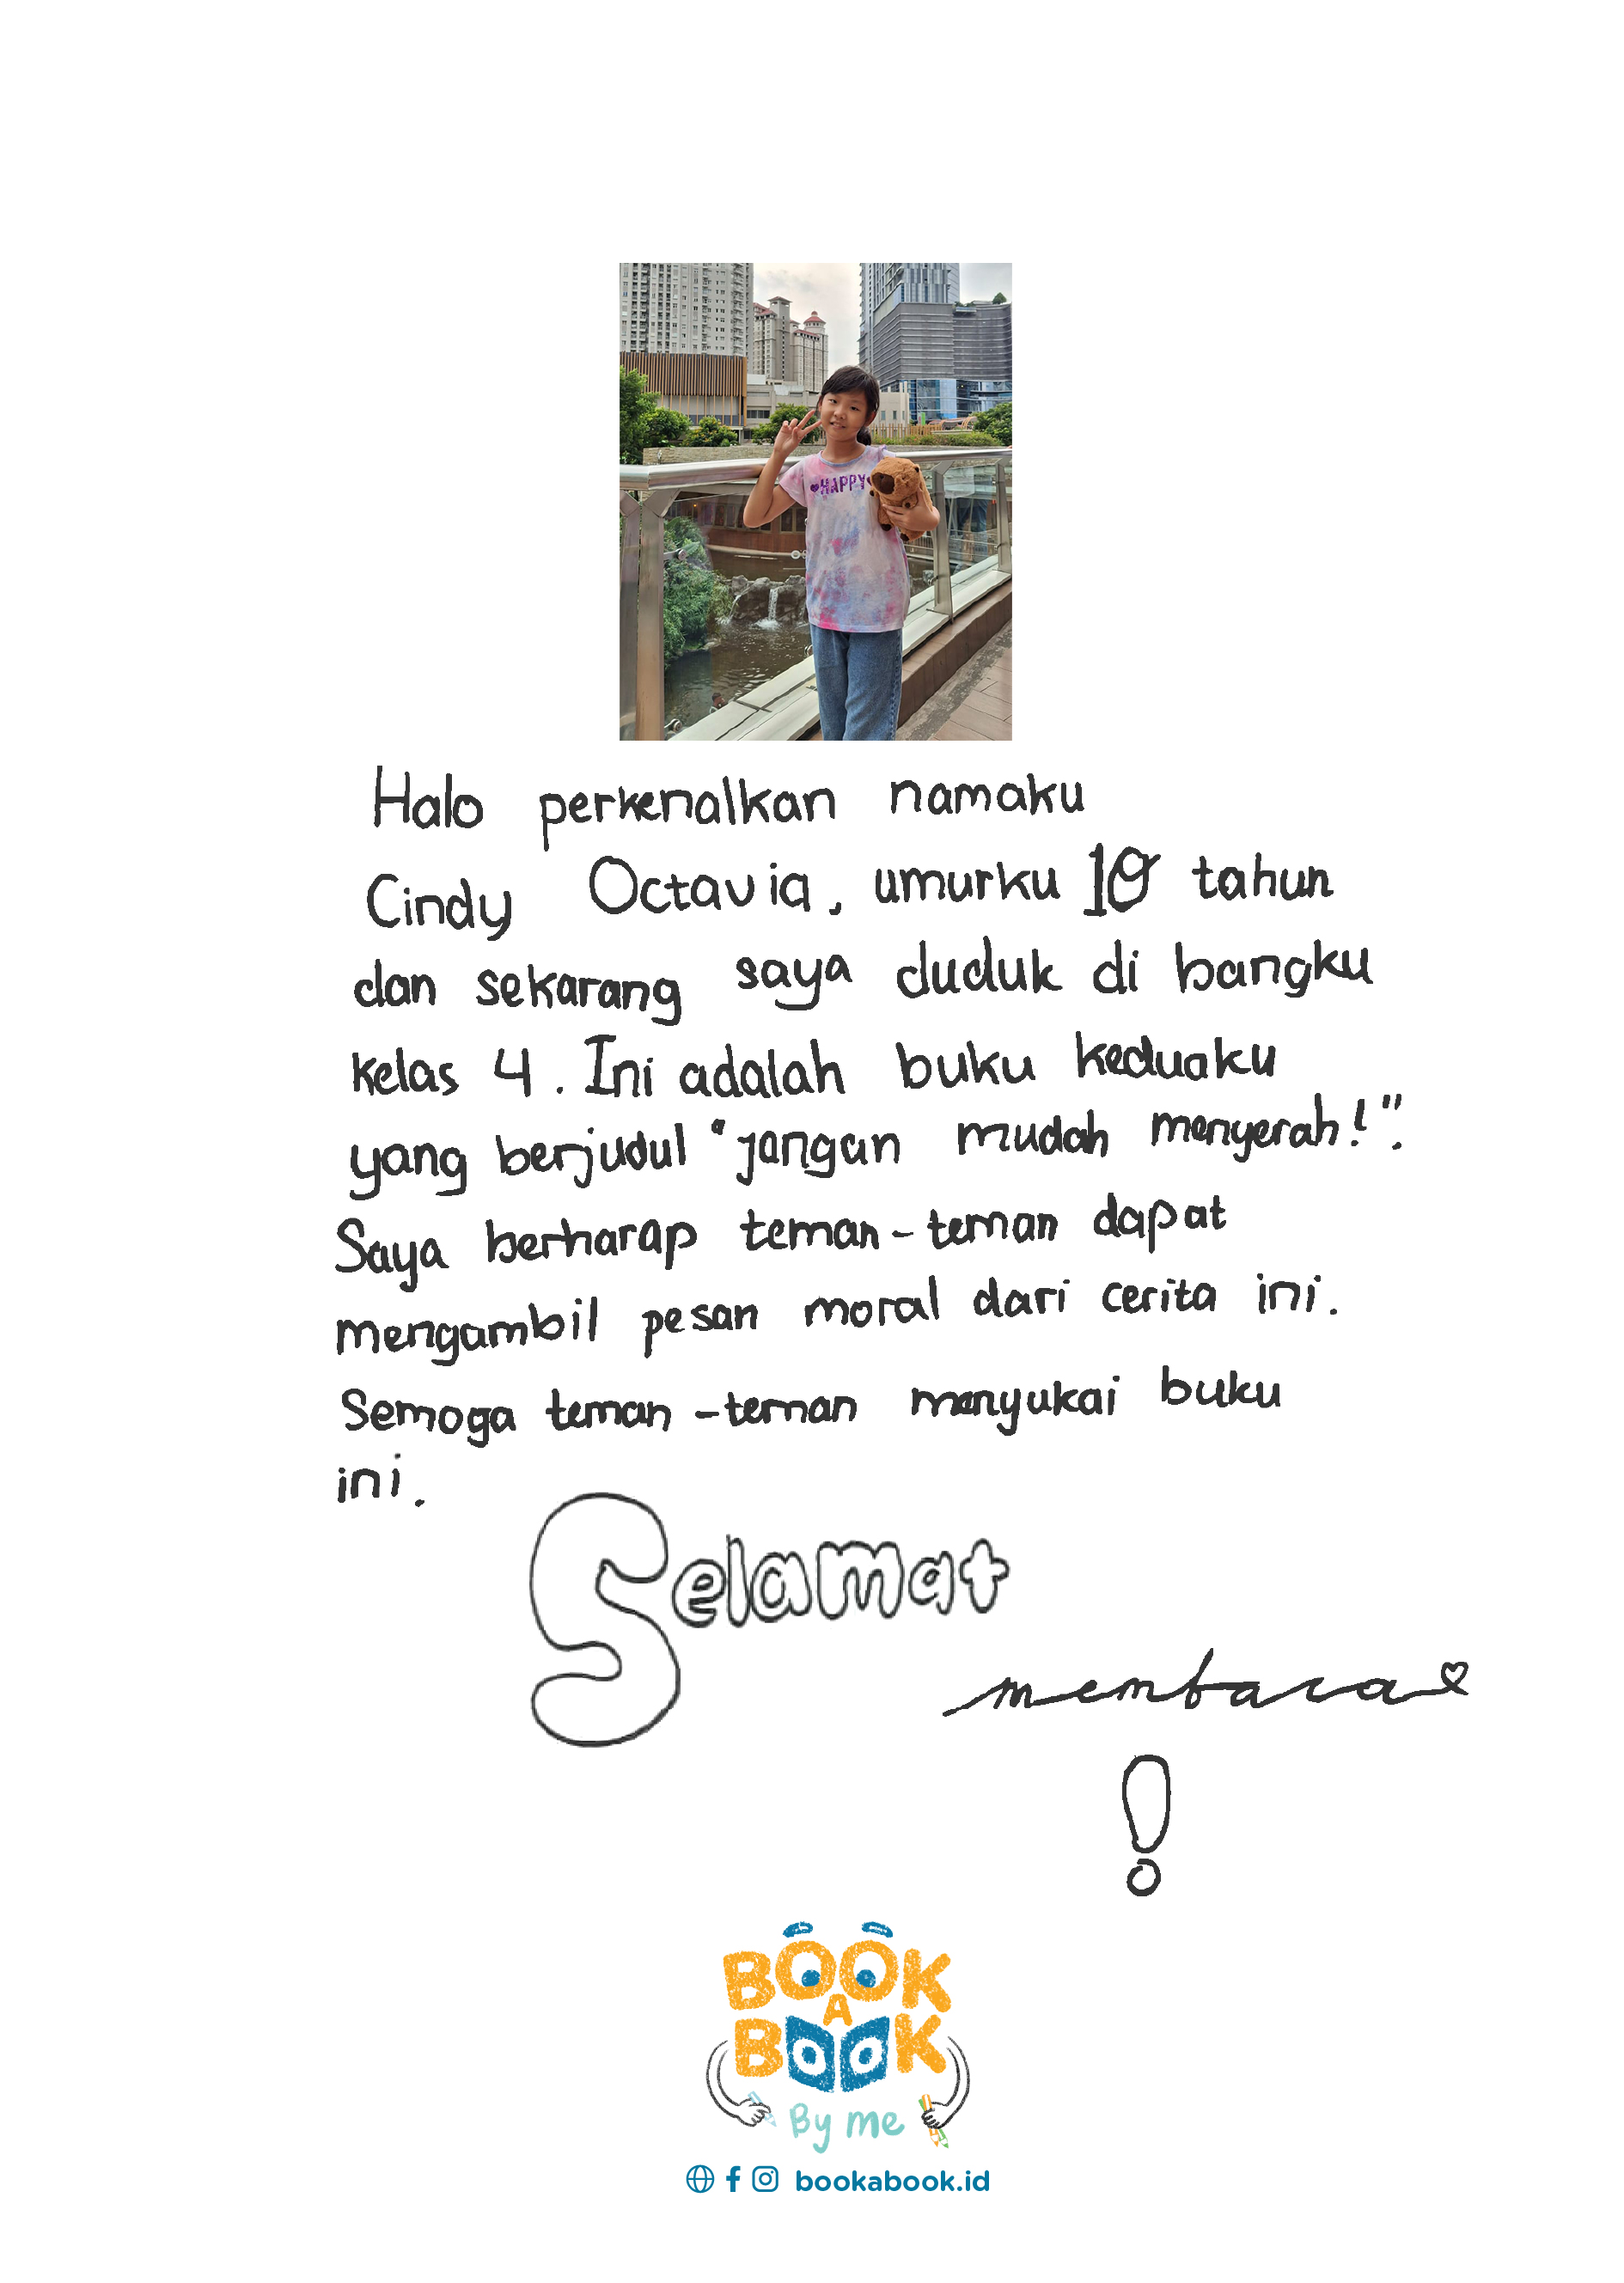 HAPPY
Halo perkenalkan namaku
Cindy Octavia, umurku 10 tahun
dan sekarang saya duduk di bangku
kelas 4. Ini adalah buku keduaku
yang berjudul "jangan mudah menyerah!".
Saya berharap teman-teman dapat
mengambil pesan moral dari cerita ini.
Semoga teman-teman menyukai buku
ini.
Selamat
membaca
!
BOOK
A
BOOK
By me
bookabook.id